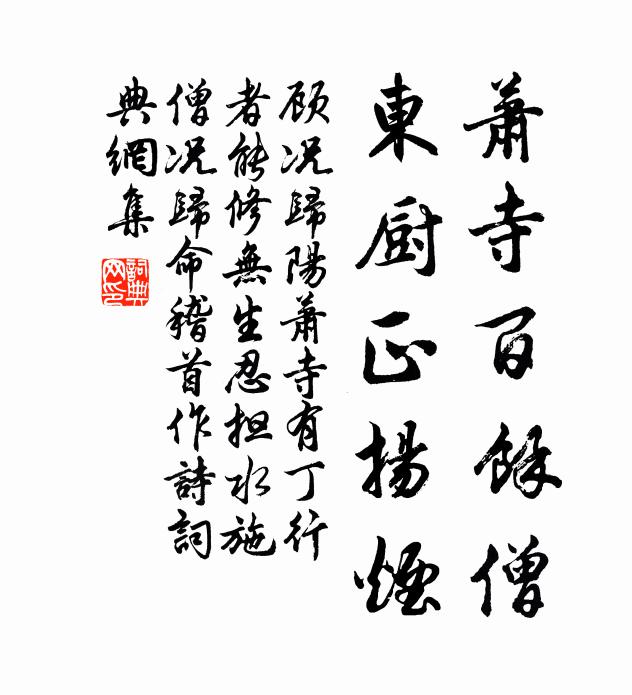 蕭寺百餘僧
東厨正揚煙
顾况歸陽蕭寺有丁行
者能修無生忍担水施
僧况歸命稽首作詩詞
典網集
詞典
网印